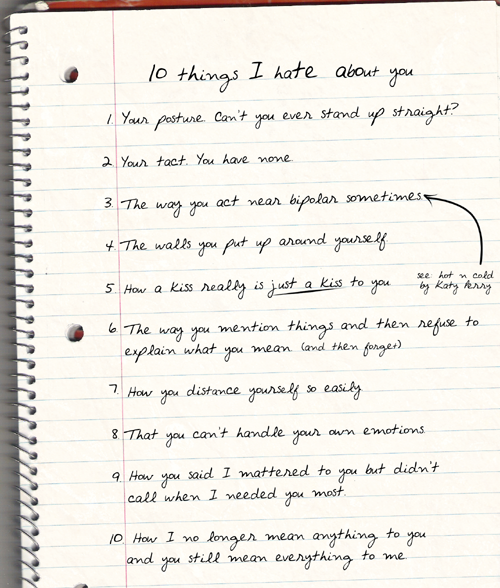 10 things I hate about you
1. Your posture. Can't you ever stand up straight?
2. Your tact. You have none.
3. The way you act near bipolar sometimes.
4. The walls you put up around yourself
see: hot n cold
by Katy Perry
5. How a kiss really is just a kiss to you
6. The way you mention things and then refuse to
explain what you mean (and then forget)
7. How you distance yourself so easily
8. That you can't handle your own emotions.
9. How you said I mattered to you but didn't
call when I needed you most.
10. How I no longer mean anything to you
and you still mean everything to me.